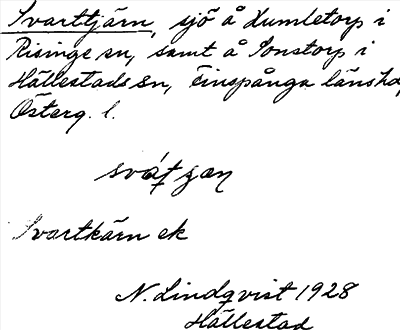 Svarttjärn, sjö å Humletorp i
Risinge sn, samt å Sonstorp i
Hällestads sn, Finspånga länshd,
Österg. l.
Svartkärn ek
N. Lindqvist 1928
Hällestad